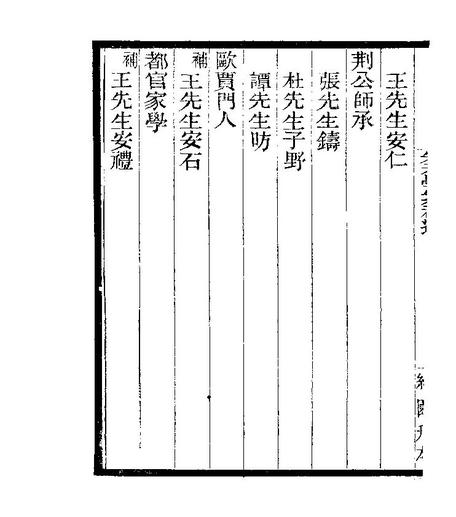 王先生安仁
荆公師承
張先生鑄
杜先生子野
譚先生昉
歐賈門人
補王先生安石
都官家學
補王先生安禮